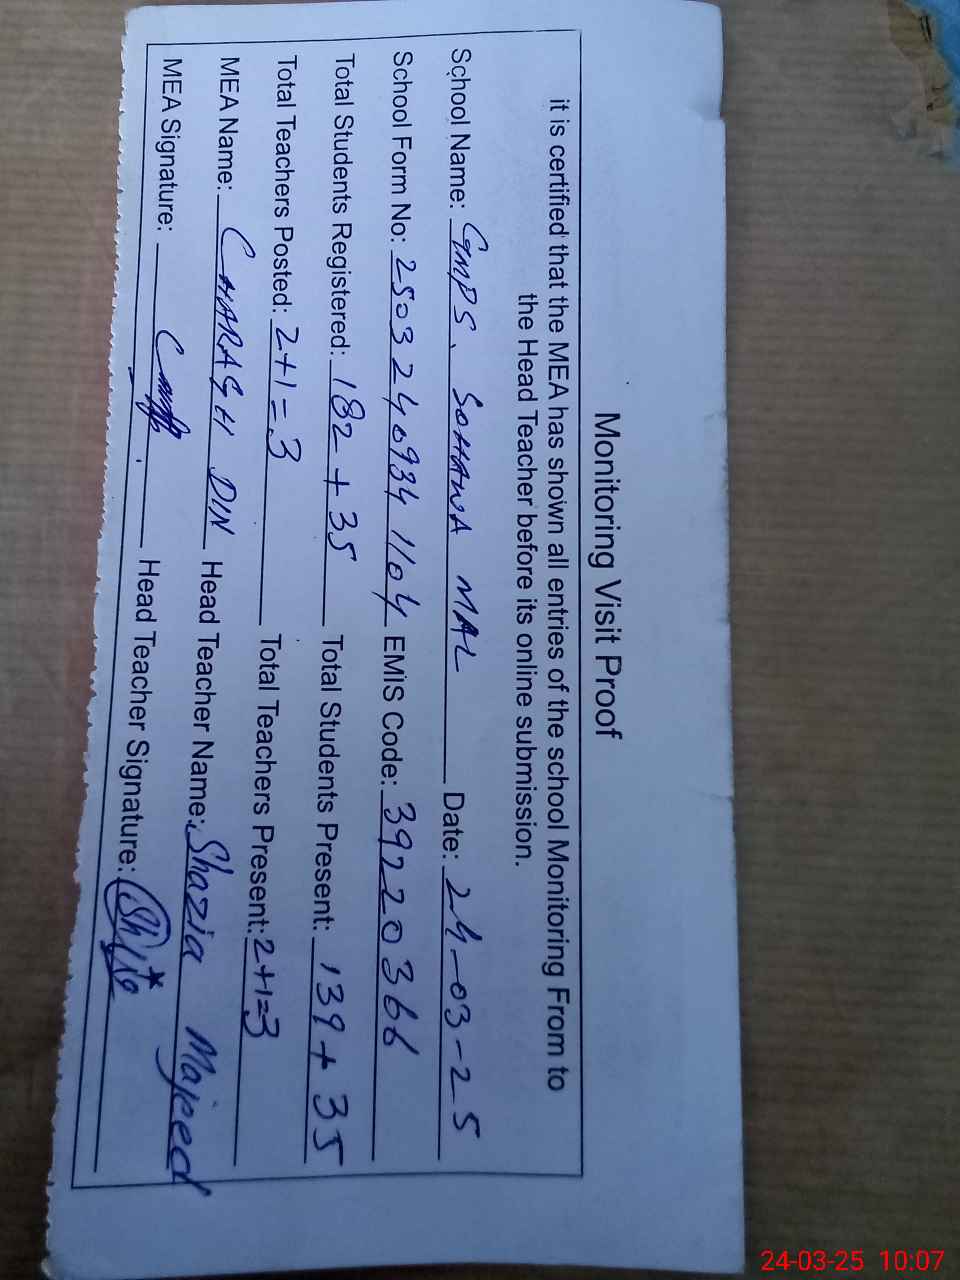 Monitoring Visit Proof
it is certified that the MEA has shown all entries of the school Monitoring From to
the Head Teacher before its online submission.
School Name: GMPS, SOHAWA MAL Date: 24-03-25
School Form No: 25032409341104 EMiS Code: 39220366
Total Students Registered: 182 + 35 Total Students Present: 139 + 35
Total Teachers Posted: 2+1=3 Total Teachers Present: 2+1=3
MEA Name: CHARAGH DIN Head Teacher Name: Shazia Majeed
MEA Signature: Head Teacher Signature:
24-03-25 10:07